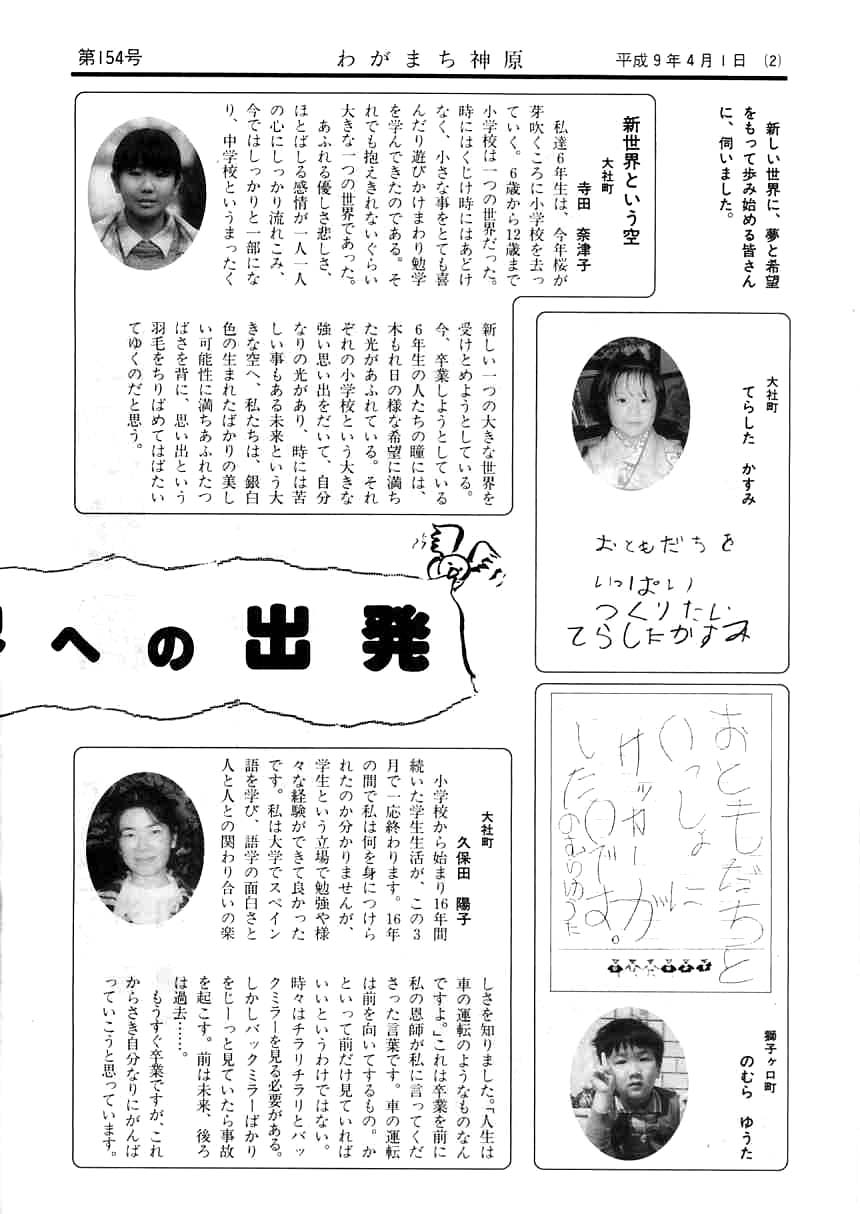 第154号
わがまち神原
平成9年4月1日 (2)
新しい世界に、夢と希望
をもって歩み始める皆さん
に、伺いました。
新世界という空
大社町
寺田 奈津子
私達6年生は、今年桜が
芽吹くころに小学校を去っ
ていく。6歳から12歳まで
小学校は一つの世界だった。
時にはくじけ時にはあどけ
なく、小さな事をとても喜
んだり遊びかけまわり勉学
を学んできたのである。そ
れでも抱えきれないぐらい
大きな一つの世界であった。
あふれる優しさ悲しさ、
ほとばしる感情が一人一人
の心にしっかり流れこみ、
今ではしっかりと一部にな
り、中学校というまったく
新しい一つの大きな世界を
受けとめようとしている。
今、卒業しようとしている
6年生の人たちの瞳には、
木もれ日の様な希望に満ち
た光があふれている。それ
ぞれの小学校という大きな
強い思い出をだいて、自分
なりの光があり、時には苦
しい事もある未来という大
きな空へ、私たちは、銀白
色の生まれたばかりの美し
い可能性に満ちあふれたつ
ばさを背に、思い出という
羽毛をちりばめてはばたい
てゆくのだと思う。
大社町
てらした かすみ
おともだちを
いっぱい
つくりたい
てらしたかすみ
への出発
おともだちと
いっしょに
サッカーが
したいです。
のむらゆうた
獅子ヶ口町
のむら ゆうた
大社町
久保田 陽子
小学校から始まり16年間
続いた学生生活が、この3
月で一応終わります。16年
の間で私は何を身につけら
れたのか分かりませんが、
学生という立場で勉強や様
々な経験ができて良かった
です。私は大学でスペイン
語を学び、語学の面白さと
人と人との関わり合いの楽
しさを知りました。「人生は
車の運転のようなものなん
ですよ。」これは卒業を前に
私の恩師が私に言ってくだ
さった言葉です。車の運転
は前を向いてするもの。か
といって前だけ見ていれば
いいというわけではない。
時々はチラリチラリとバッ
クミラーを見る必要がある。
しかしバックミラーばかり
をじーっと見ていたら事故
を起こす。前は未来、後ろ
は過去……。
もうすぐ卒業ですが、これ
からさき自分なりにがんば
っていこうと思っています。